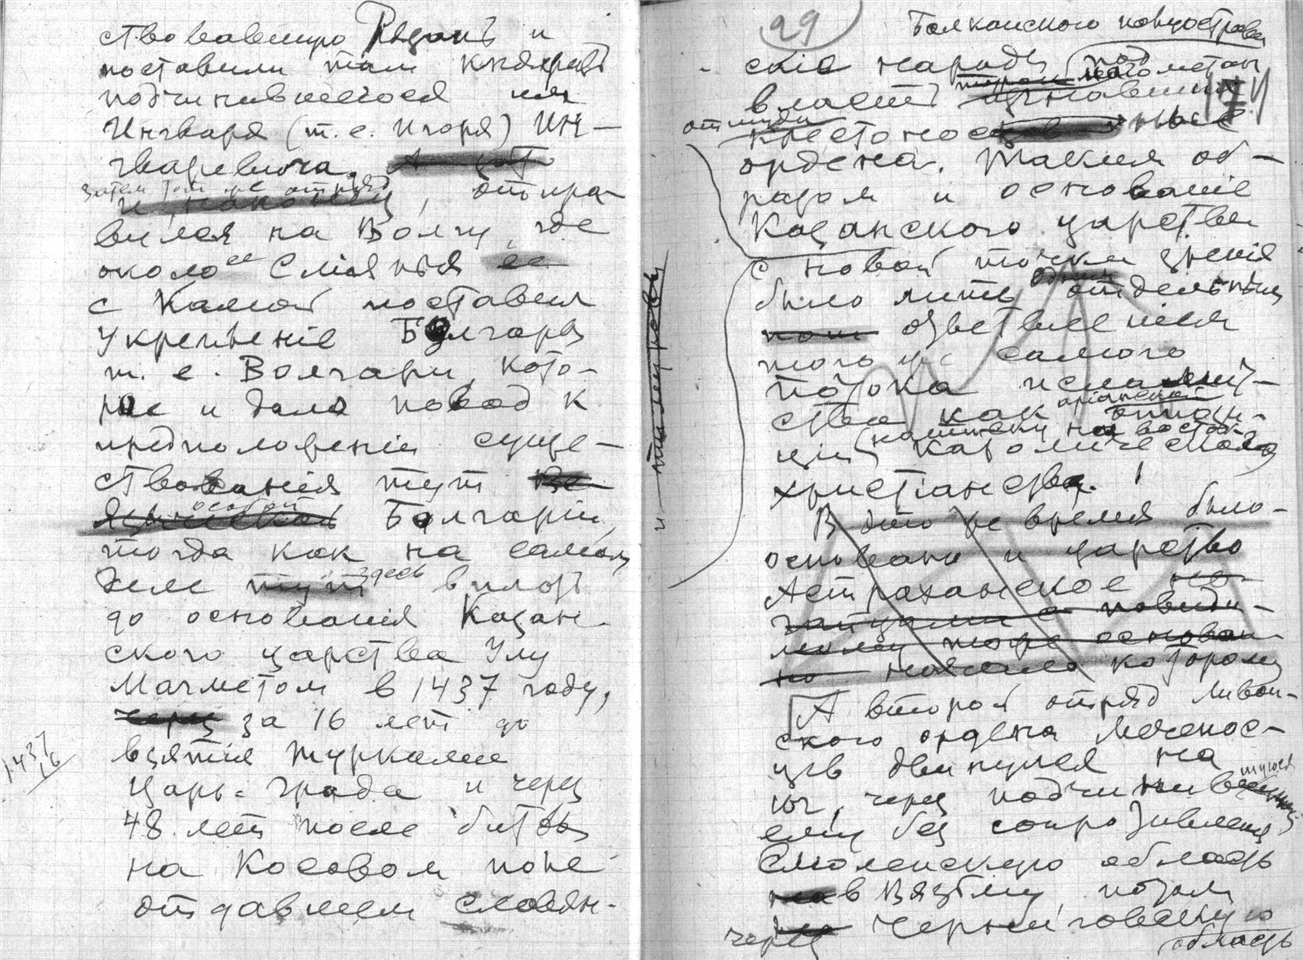 ствовавшую Рязань и
поставили там князя
подчинившегося им
Ингваря (т. е. Игоря) Ин-
гваревича.
затем тот же отряд
отпра-
вился на Волгу, где
около ее слиянія
с Камой поставил
укрепленіе Болгары
т. е. Волгари, кото-
рое и дало повод к
предположенію суще-
ствованія тут
особой
Болгаріи,
тогда как на самом
деле здесь вплоть
до основанія Казан-
ского царства Улу
Махметом в 1437 году,
за 16 лет до
1437
16
взятія турками
Царь-Града и через
48 лет после битвы
на Косовом поле
отдавшем славян-
и тамплиеров
29
Балканского полуострова
скіе народы под
власть
оттуда
крестоносные
ордена. Таким об-
разом и основаніе
Казанского царства
с новой точки зренія
было лишь отдельным
ответвленіем
того же самого
потока
ства как
христіанства.
В это же время было
основано и царство
Астраханское
начало которому
А второй отряд Ливон-
ского ордена Меченос-
цев двинулся на
юг, через подчинившуюся
ему без сопротивленія
Смоленскую область
в Вязьму, потом
через Черниговскую
область